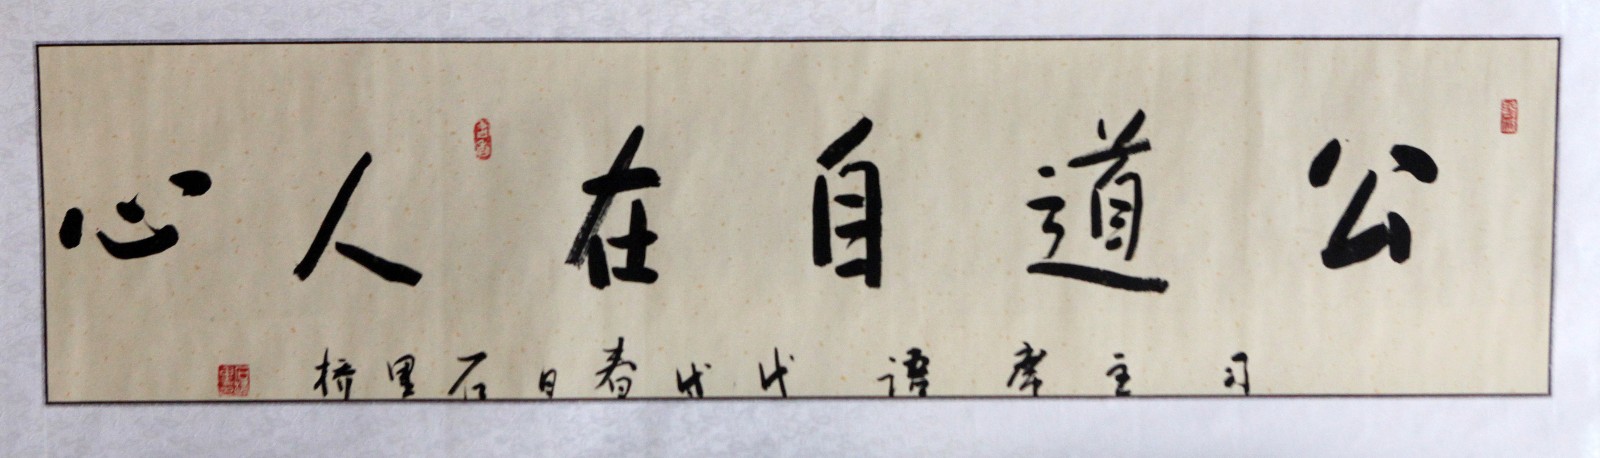 公道自在人心
习主席语戊戌春日石里桥